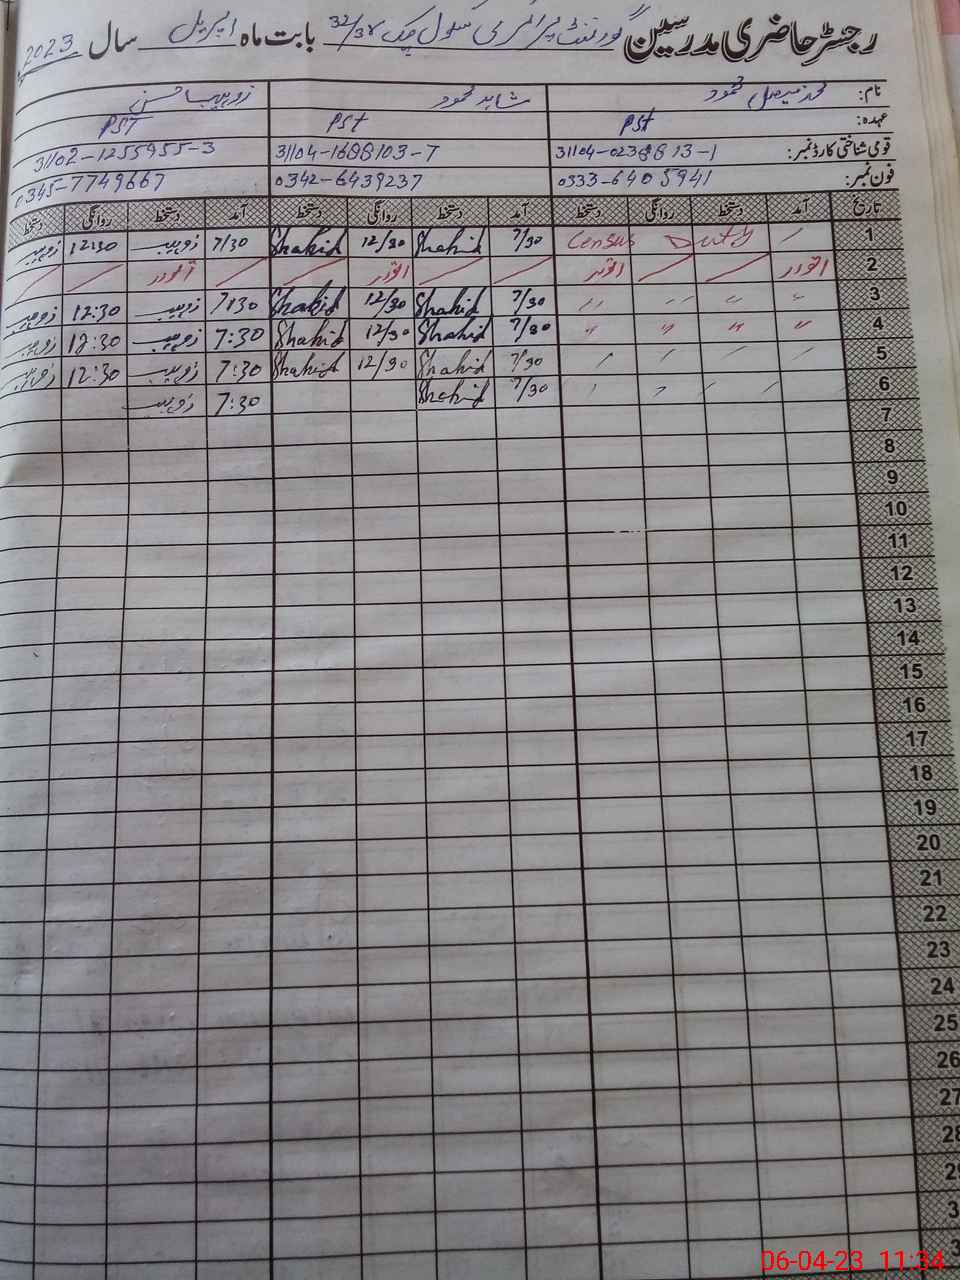 رجسٹر حاضری مدرسین گورنمنٹ پرائمری سکول چک 32/3R بابت ماہ اپریل سال 2023
نام: محمد فیصل محمود شاہد محمود زوہیب حسن
عہدہ: PST PST PST
قومی شناختی کارڈ نمبر: 31104-0238813-1 31104-1688103-7 31102-1255955-3
فون نمبر: 0333-6405941 0342-6439237 0345-7749667
تاریخ آمد دستخط روانگی دستخط آمد دستخط روانگی دستخط آمد دستخط روانگی دستخط
1 Census Duty 7/30 Shahid 12/30 Shahid 7/30 زوہیب 12:30 زوہیب
2 اتوار اتوار اتوار اتوار
3 〃 〃 〃 〃 7/30 Shahid 12/30 Shahid 7/30 زوہیب 12:30 زوہیب
4 〃 〃 〃 〃 7/30 Shahid 12/30 Shahid 7:30 زوہیب 12:30 زوہیب
5 7/30 Shahid 12/30 Shahid 7:30 زوہیب 12:30 زوہیب
6 7/30 Shahid 7:30 زوہیب
7
8
9
10
11
12
13
14
15
16
17
18
19
20
21
22
23
24
25
26
27
28
06-04-23 11:34